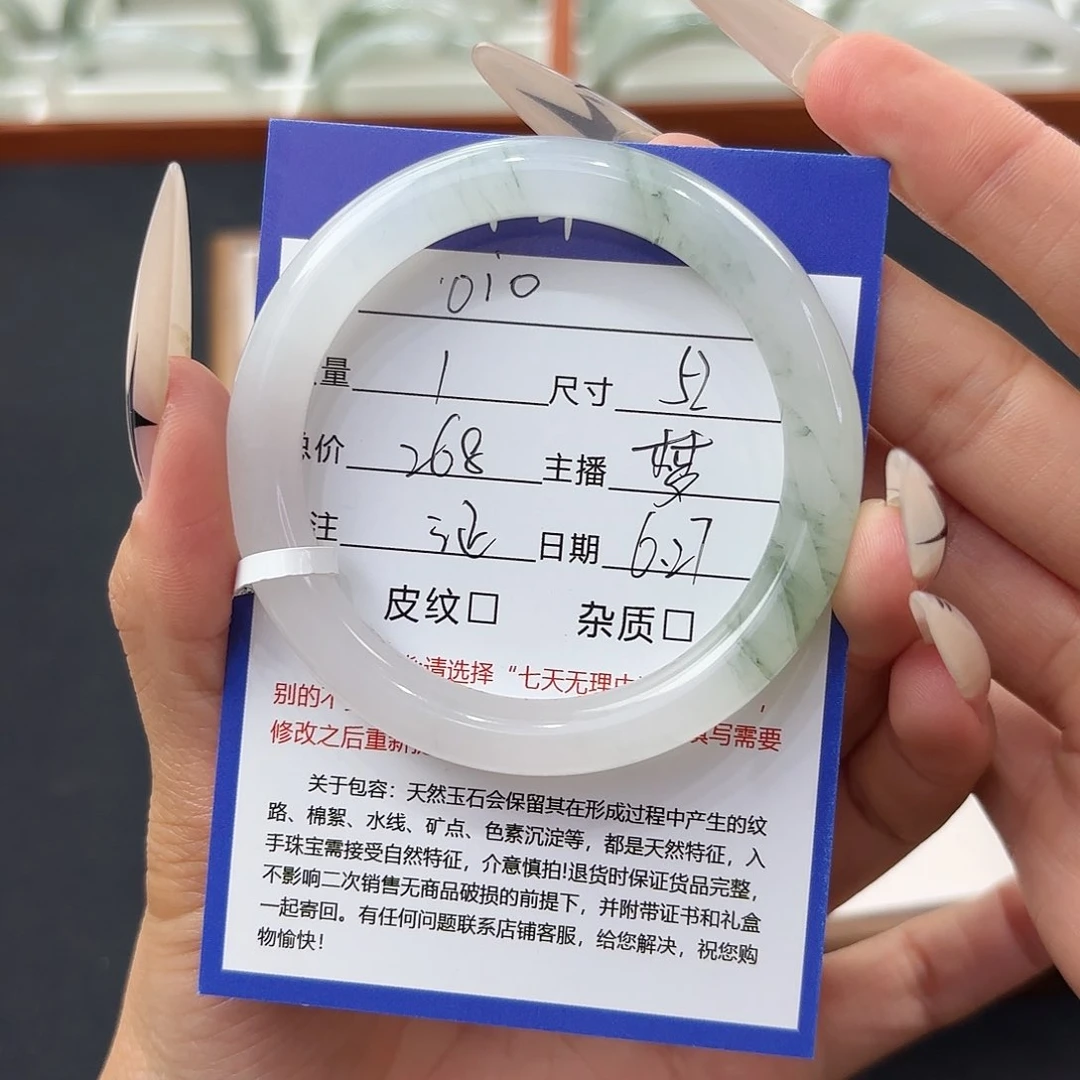 010
量 1 尺寸 52
价 268 主播 梦
注 证 日期 6.27
皮纹□ 杂质□
请选择“七天无理由
别的不
修改之后重新 填写需要
关于包容：天然玉石会保留其在形成过程中产生的纹
路、棉絮、水线、矿点、色素沉淀等，都是天然特征，入
手珠宝需接受自然特征，介意慎拍!退货时保证货品完整，
不影响二次销售无商品破损的前提下，并附带证书和礼盒
一起寄回。有任何问题联系店铺客服，给您解决，祝您购
物愉快！